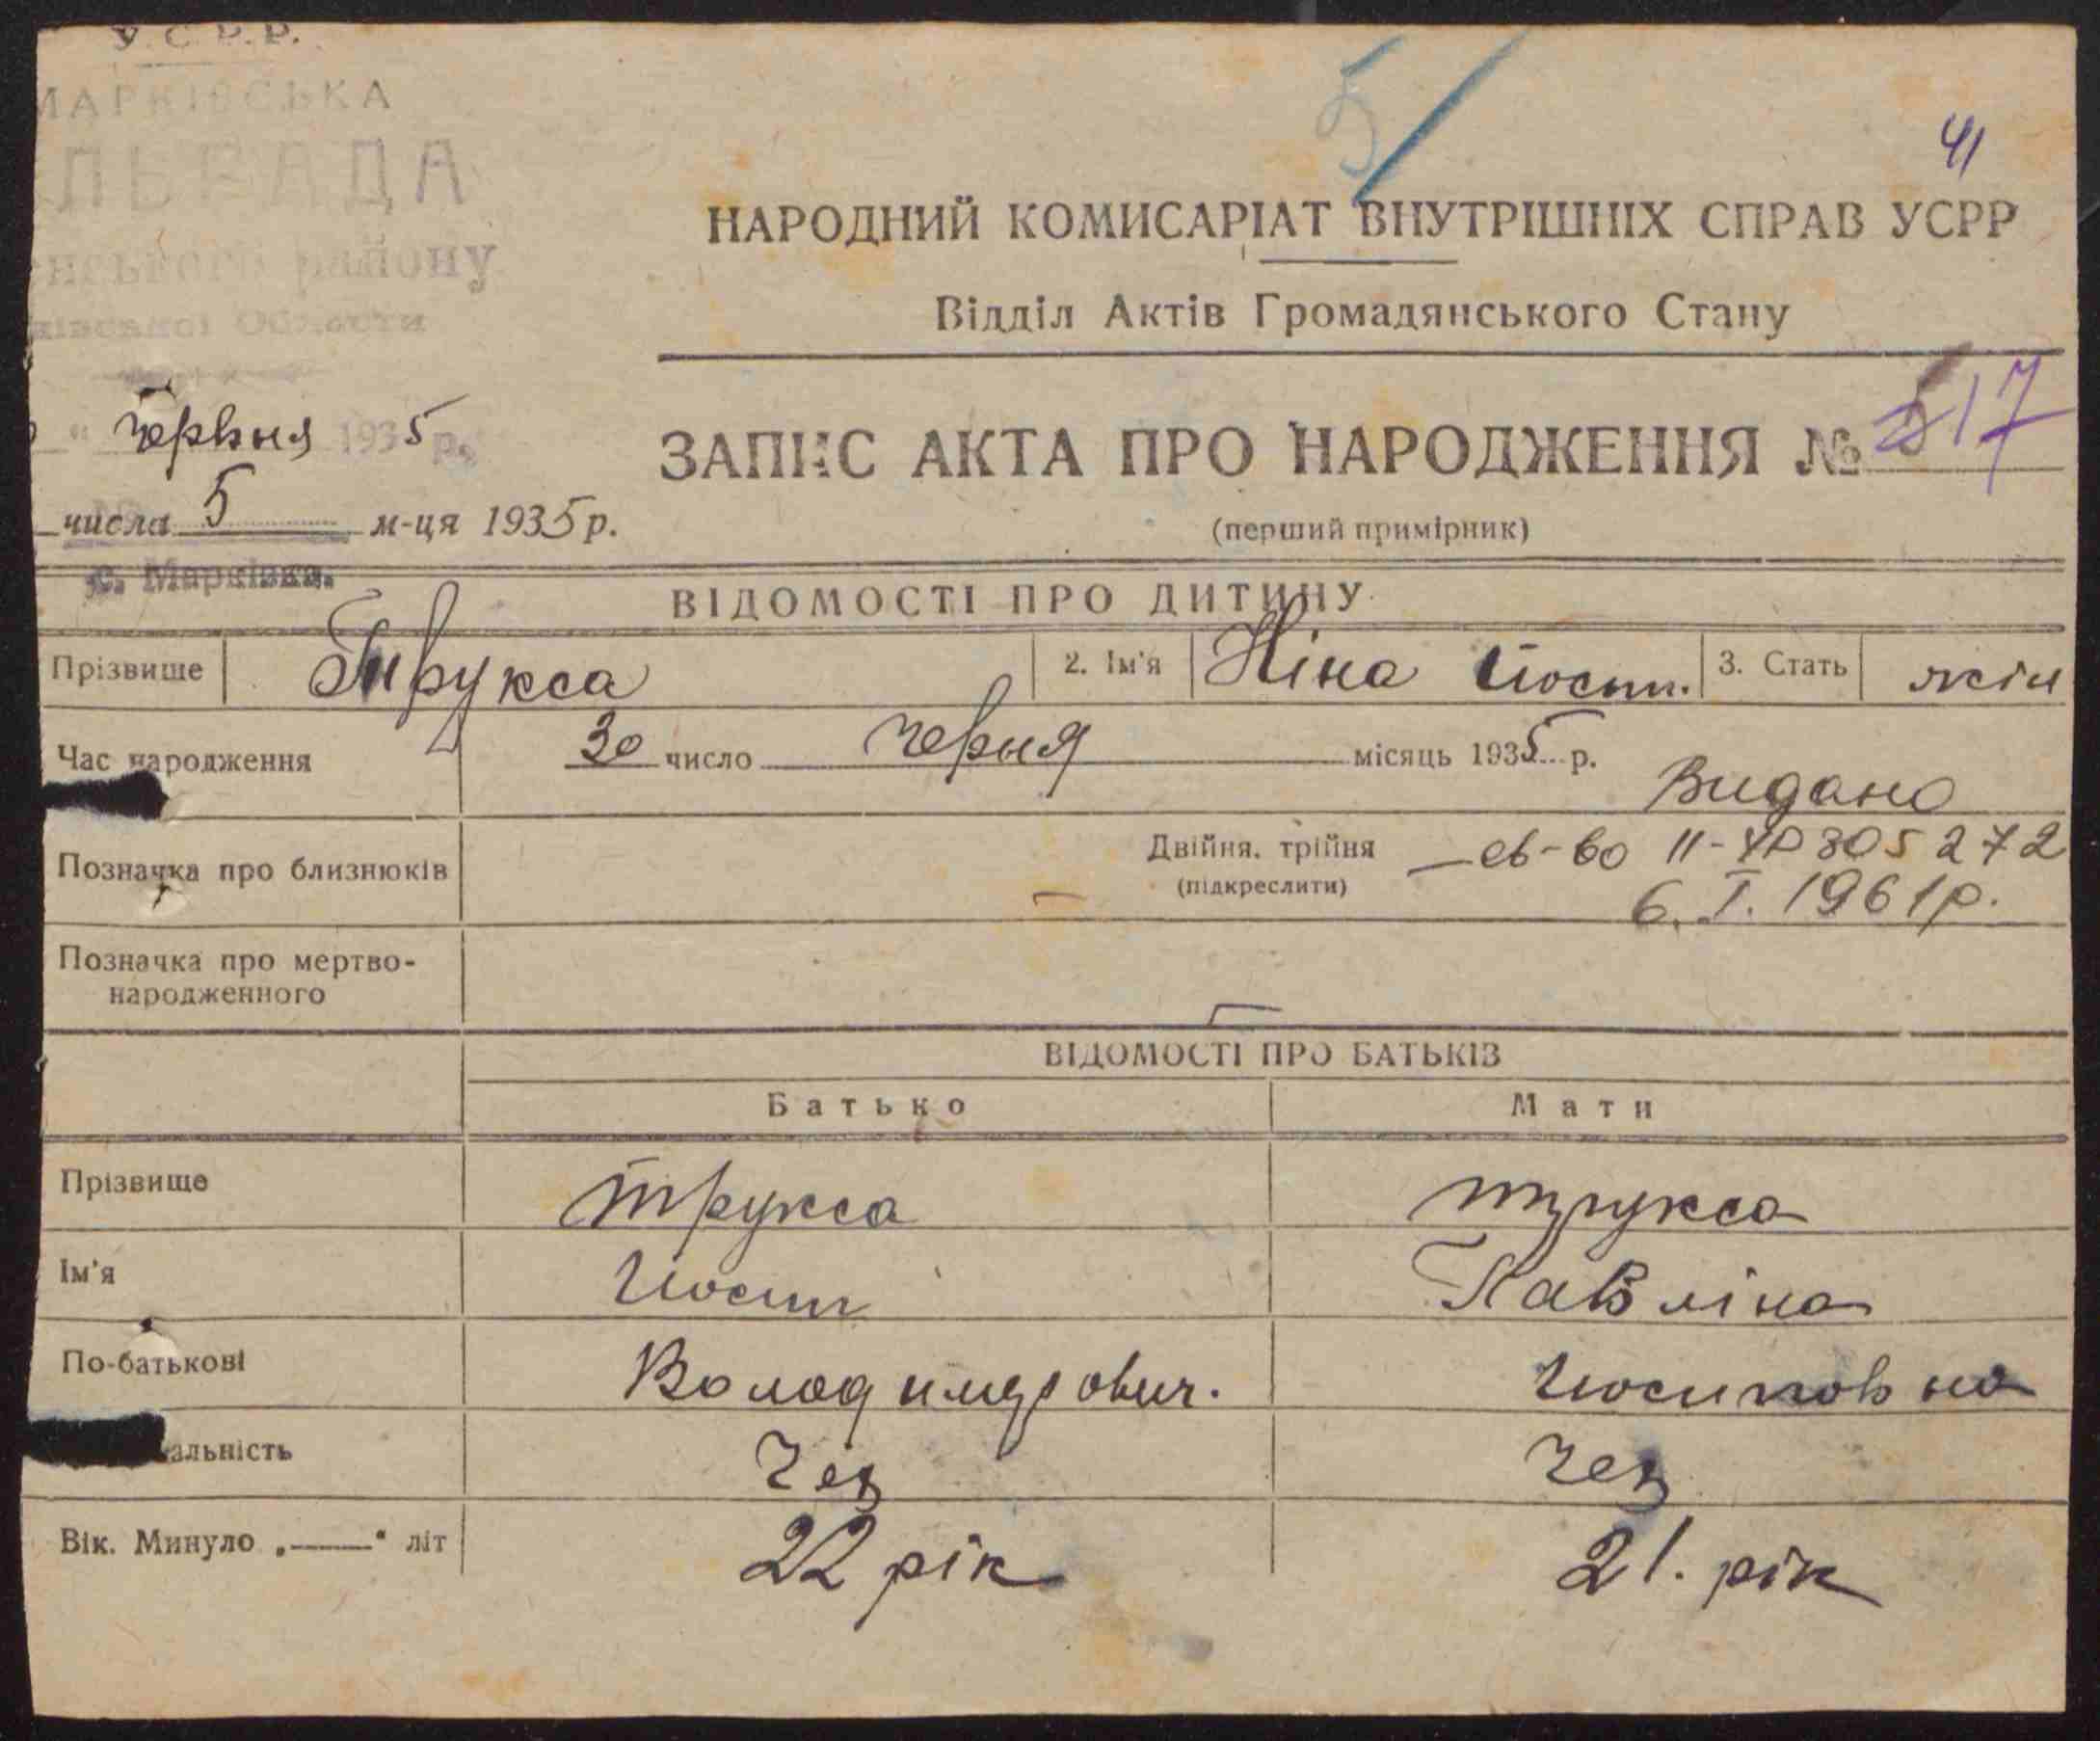 У.С.Р.Р.
МАРКІВСЬКА
ЛЬРАДА
нського району
Області
" червня 1935 р.
числа 5 м-ця 1935 р.
с. Марківка.
5
41
НАРОДНИЙ КОМИСАРІАТ ВНУТРІШНІХ СПРАВ УСРР
Відділ Актів Громадянського Стану
ЗАПИС АКТА ПРО НАРОДЖЕННЯ № 17
(перший примірник)
ВІДОМОСТІ ПРО ДИТИНУ
Прізвище Трукса 2. Ім'я Ніна Йосип. 3. Стать жін
Час народження 30 число черня місяць 1935 р.
Видано
Позначка про близнюків Двійня, трійня св-во ІІ-УР 805272
(підкреслити) 6. I. 1961р.
Позначка про мертво-
народженного
ВІДОМОСТІ ПРО БАТЬКІВ
Батько Мати
Прізвище Трукса Трукса
Ім'я Йосип Павліна
По-батькові Володимирович. Йосиповна
альність Чех Чех
Вік. Минуло „——" літ 22 рік 21. рік